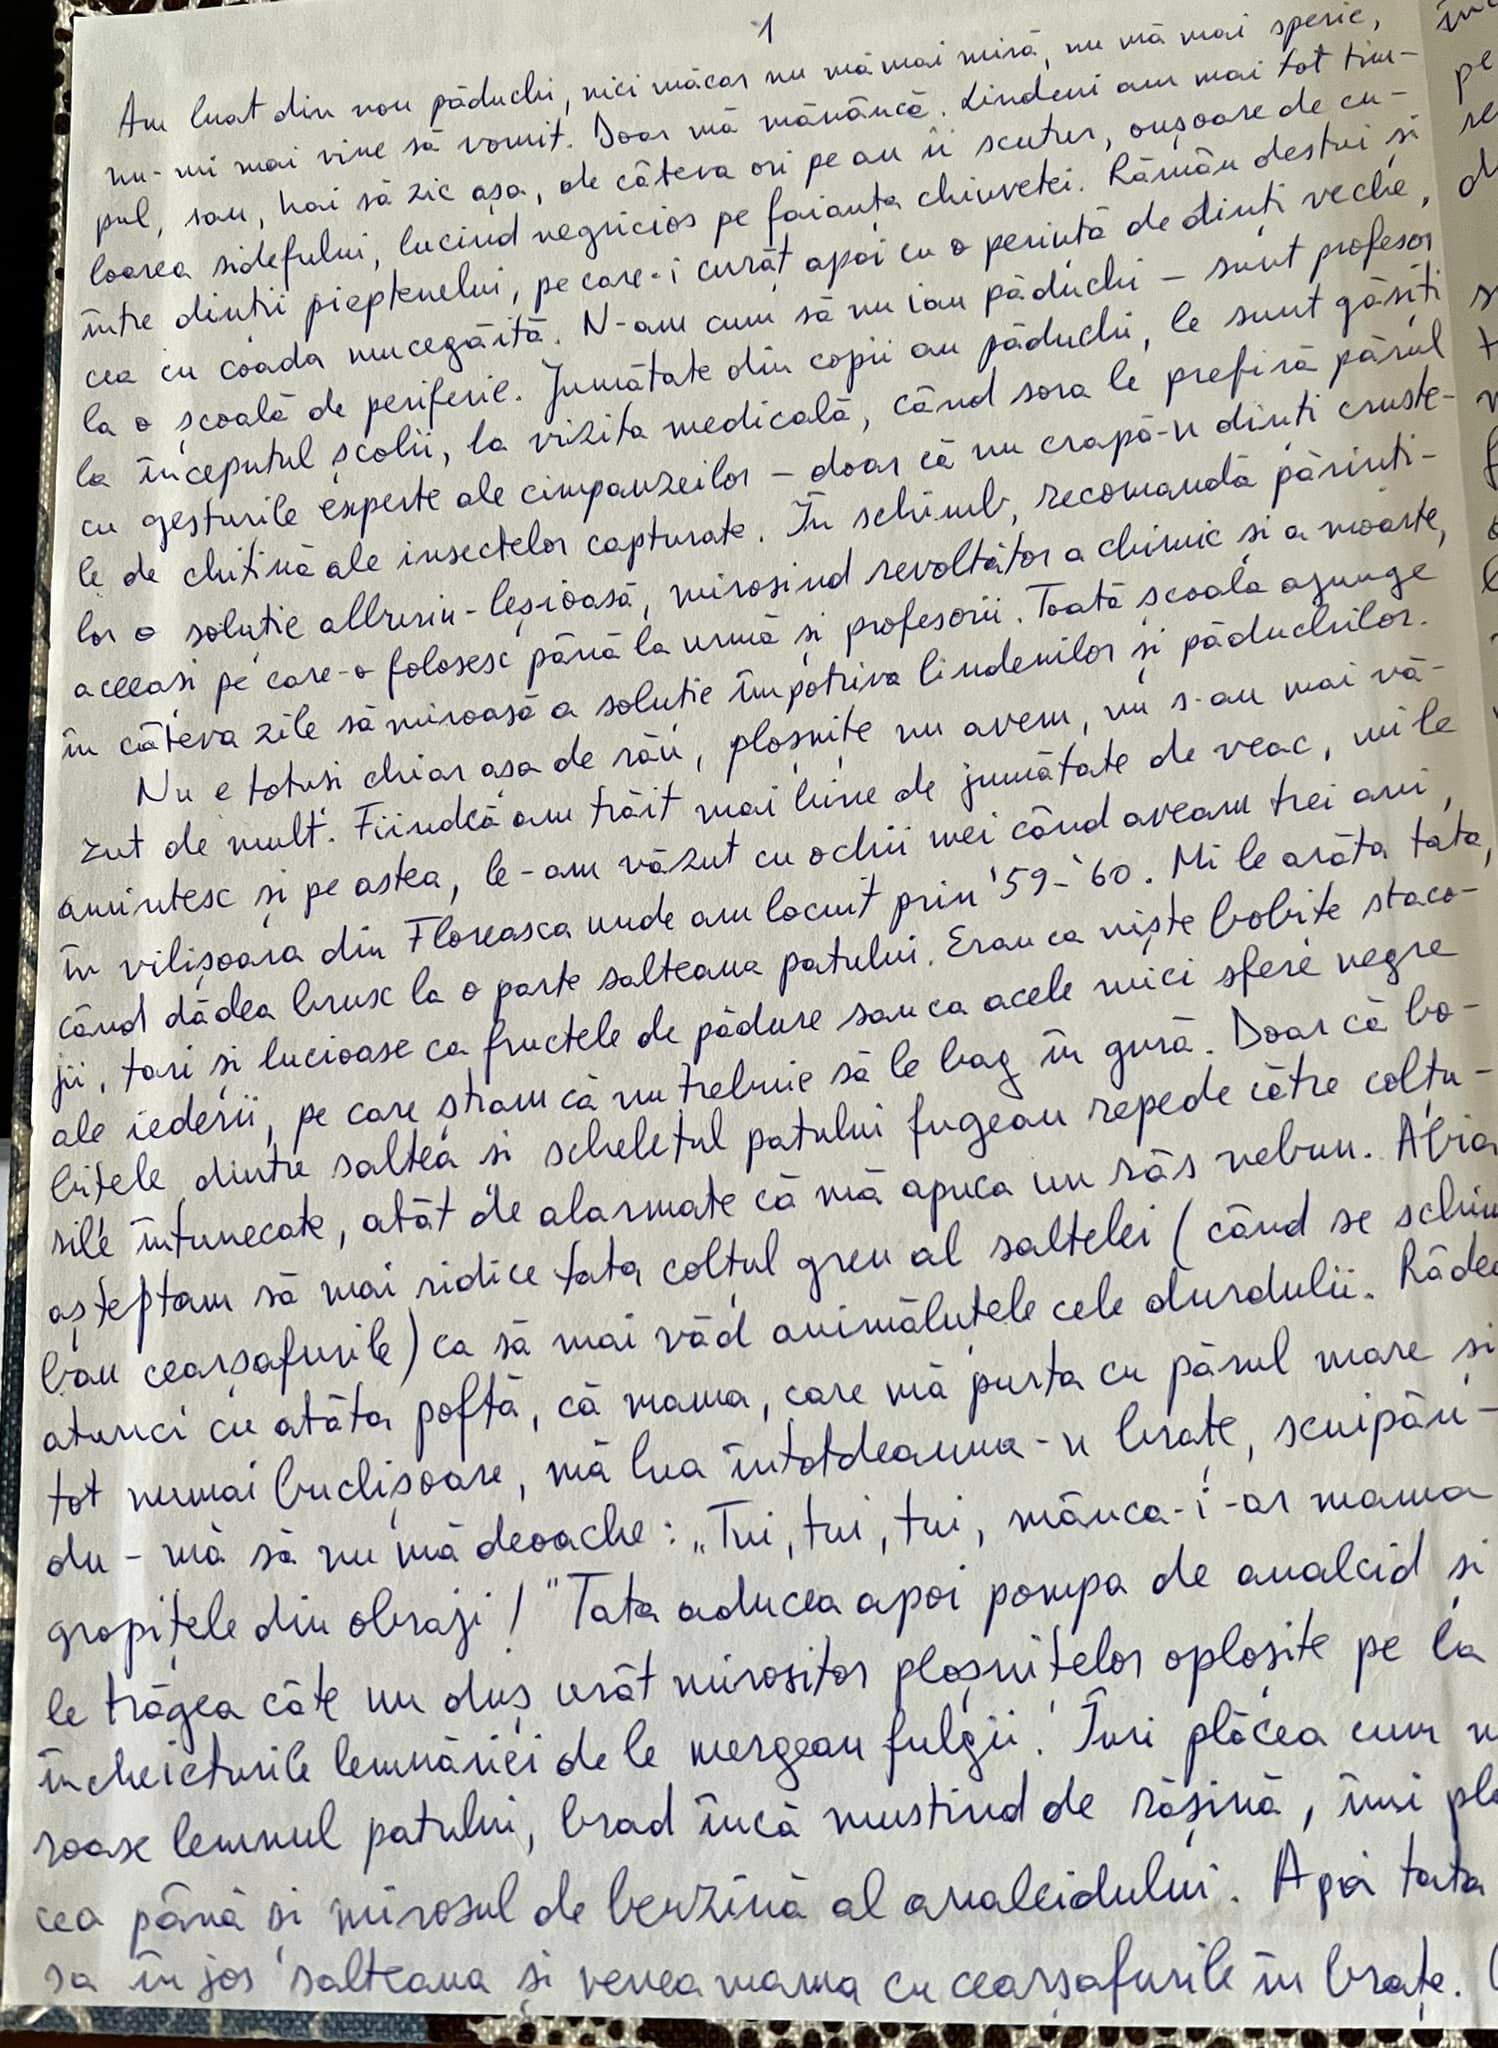 1
Am luat din nou păduchi, nici măcar nu mă mai miră, nu mă mai sperie,
nu-mi mai vine să vomit. Doar mă mănâncă. Lindeni am mai tot tim-
pul, sau, hai să zic așa, de câteva ori pe an îi scutur, oușoare de cu-
loarea sidefului, lucind negricios pe faianța chiuvetei. Rămân destui și
între dinții pieptenelui, pe care-i curăț apoi cu o periuță de dinți veche,
cea cu coada mucegăită. N-am cum să nu iau păduchi – sunt profesor
la o școală de periferie. Jumătate din copii au păduchi, le sunt găsiți
la începutul școlii, la vizita medicală, când sora le prefiră părul
cu gesturile experte ale cimpanzeilor – doar că nu crapă-n dinți cruste-
le de chitină ale insectelor capturate. În schimb, recomandă părinți-
lor o soluție alburiu-leșioasă, mirosind revoltător a chimic și a moarte,
aceeași pe care-o folosesc până la urmă și profesorii. Toată școala ajunge
în câteva zile să miroasă a soluție împotriva lindenilor și păduchilor.
Nu e totuși chiar așa de rău, ploșnițe nu avem, nu s-au mai vă-
zut de mult. Fiindcă am trăit mai bine de jumătate de veac, mi le
amintesc și pe astea, le-am văzut cu ochii mei când aveam trei ani,
în vilișoara din Floreasca unde am locuit prin '59-'60. Mi le arăta tata,
când dădea brusc la o parte salteaua patului. Erau ca niște bobițe staco-
jii, tari și lucioase ca fructele de pădure sau ca acele mici sfere negre
ale iederii, pe care știam că nu trebuie să le bag în gură. Doar că bo-
bițele dintre saltea și scheletul patului fugeau repede către colțu-
rile întunecate, atât de alarmate că mă apuca un râs nebun. Abia
așteptam să mai ridice tata colțul greu al saltelei (când se schim
bau cearșafurile) ca să mai văd animăluțele cele durdulii. Râdea
atunci cu atâta poftă, că mama, care mă purta cu părul mare și
tot numai buclișoare, mă lua întotdeauna-n brațe, scuipân-
du-mă să nu mă deoache: „Tui, tui, tui, mânca-i-ar mama
gropițele din obraji!" Tata aducea apoi pompa de analcid și
le trăgea câte un duș urât mirositor ploșnițelor oploșite pe la
încheieturile lemnăriei de le mergeau fulgii. Îmi plăcea cum
roase lemnul patului, brad încă mustind de rășină, îmi plă
cea până și mirosul de benzină al analcidului. Apoi tata
sa în jos salteaua și venea mama cu cearșafurile în brațe.